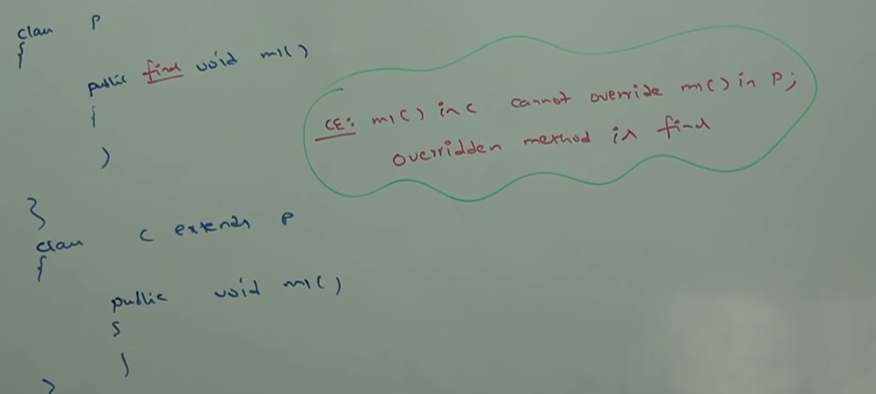 class P
{
public final void m1()
{
}
}
class C extends P
{
public void m1()
{
}
}
CE: m1() in C cannot override m1() in P;
overridden method is final